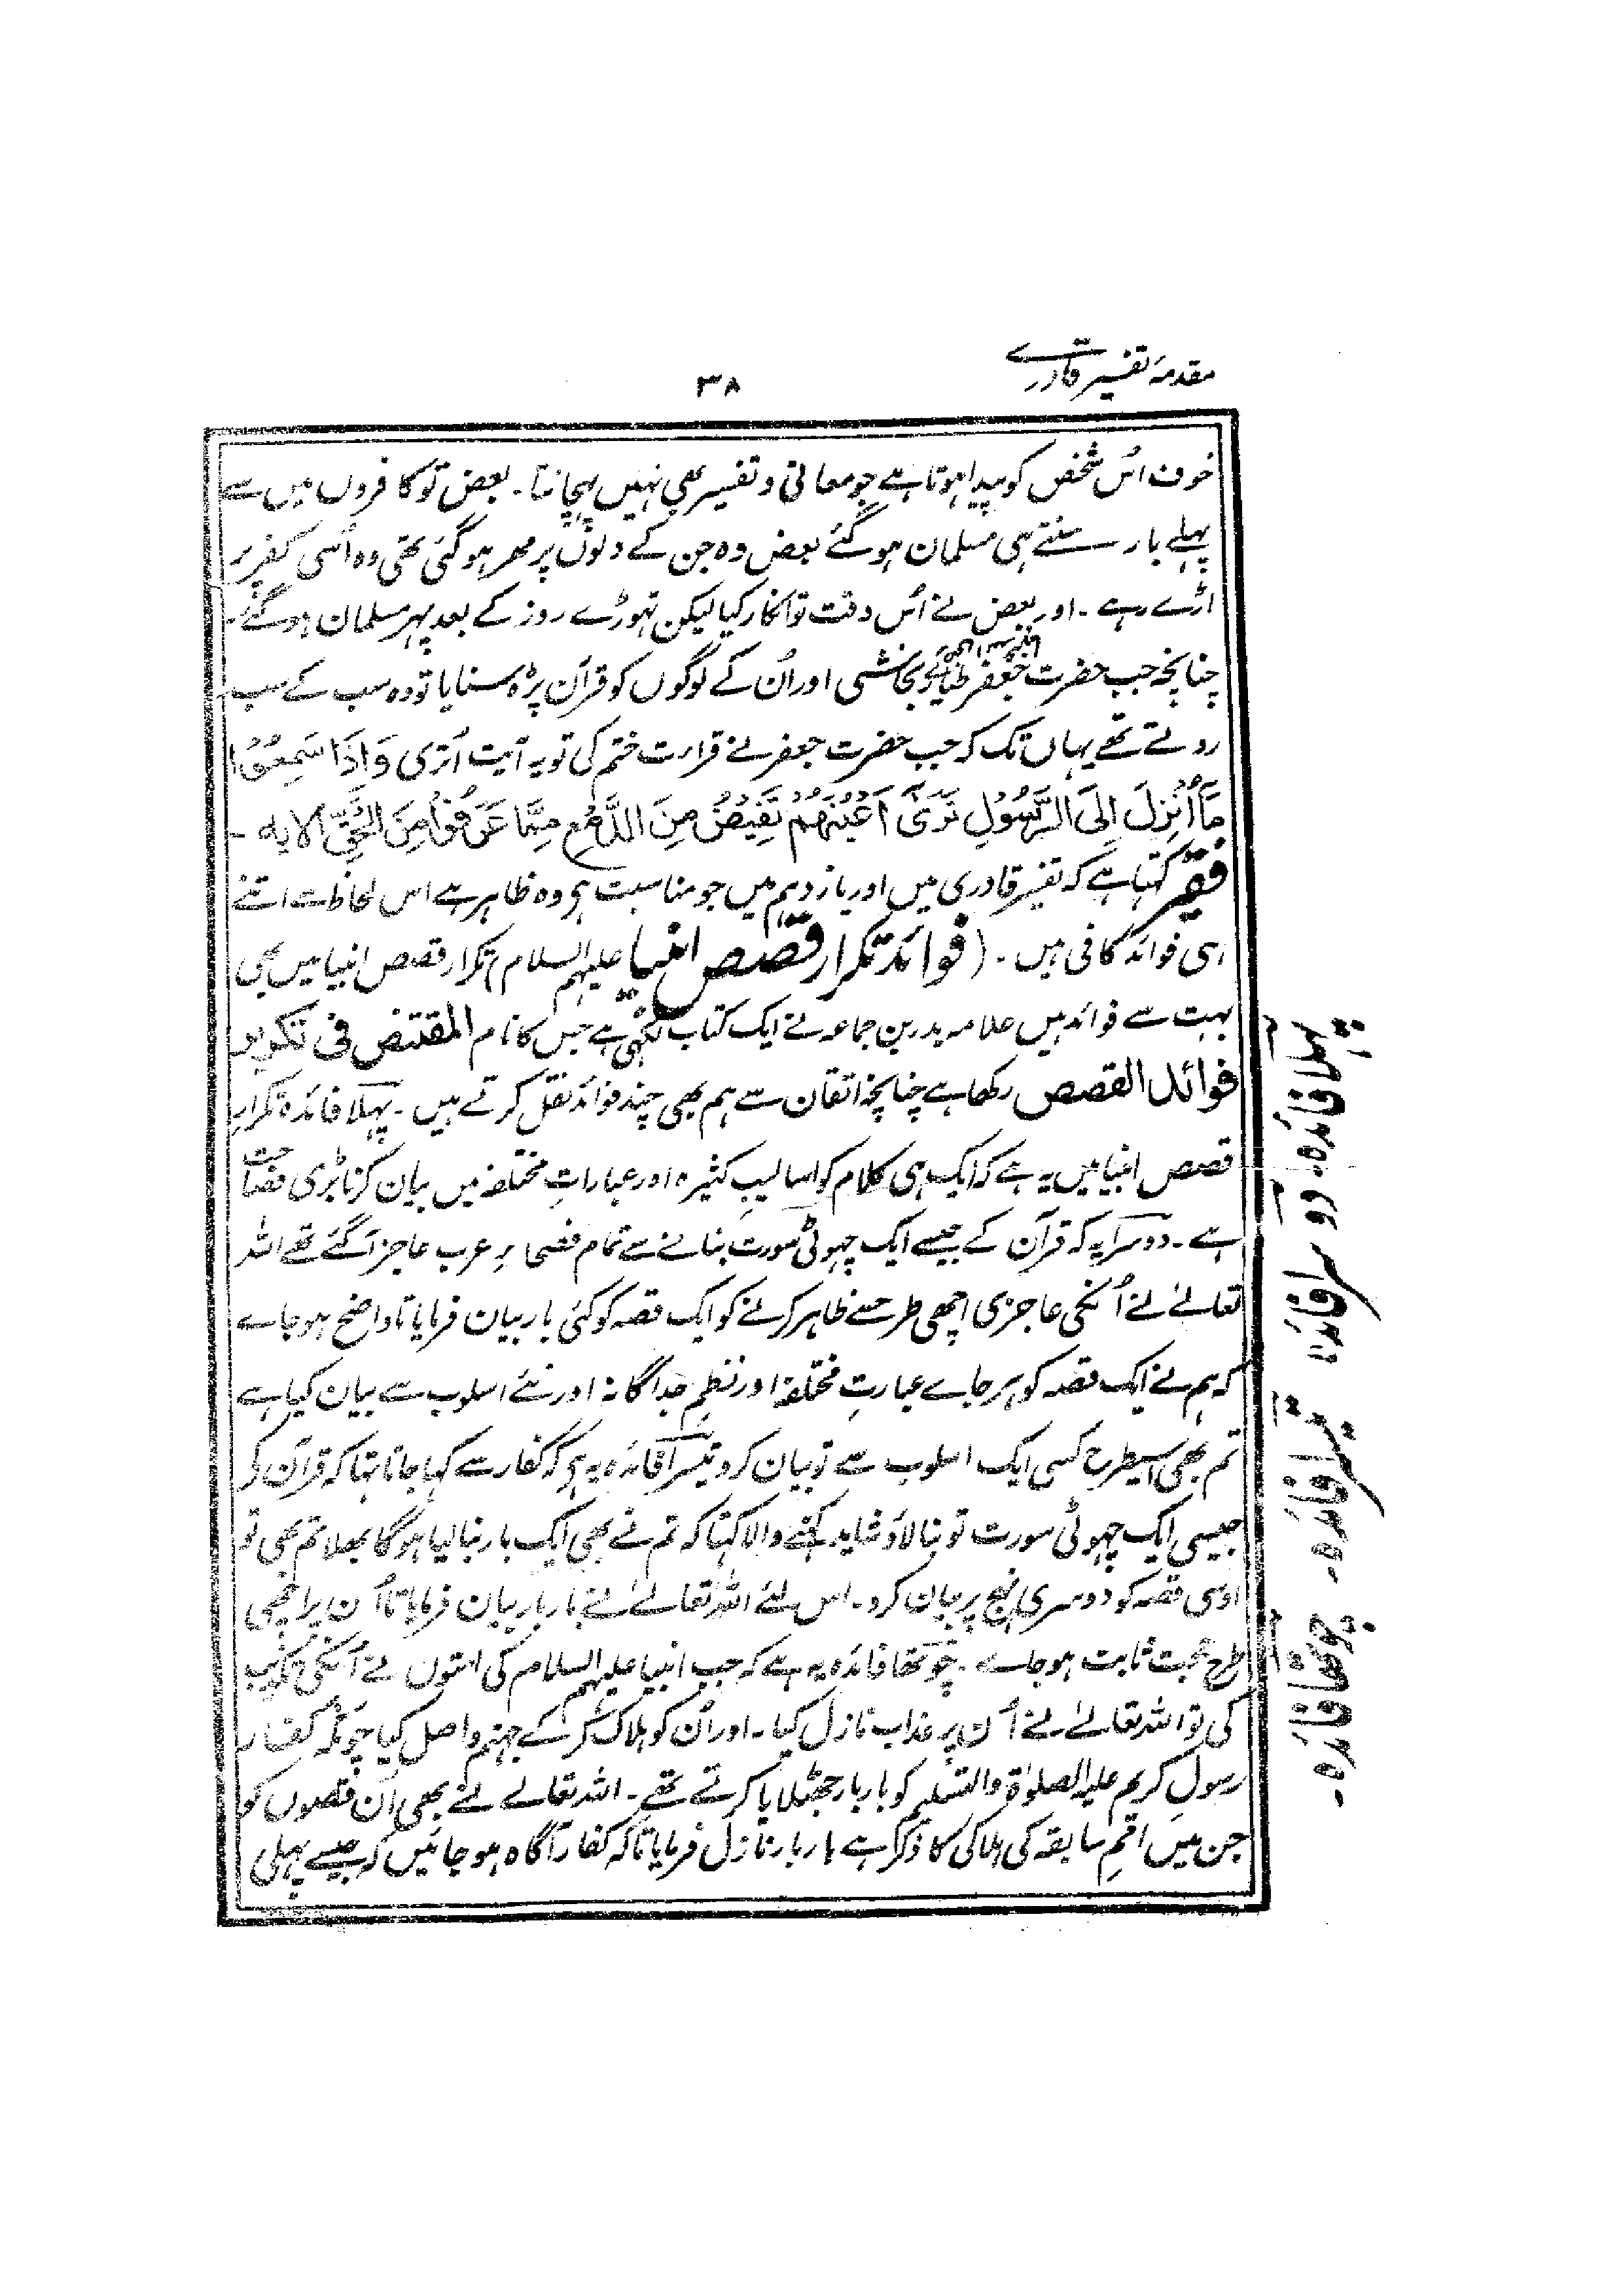 مقدمہ تفسیر قادری
۳۸
خوف اُس شخص کو پیدا ہوتا ہے جو معانی و تفسیر بھی نہیں پہچانتا۔ بعض تو کافروں میں سے
پہلے بار سنتے ہی مسلمان ہو گئے بعض وہ جن کے دلوں پر مھر ہو گئی تھی وہ اُسی کفر پر
اڑے رہے۔ اور بعض نے اُس وقت تو انکار کیا لیکن تہوڑے روز کے بعد پہر مسلمان ہو گئے۔
چنانچہ جب حضرت جعفر طیار نے نجاشی اور اُن کے لوگوں کو قرآن پڑہ سنایا تو وہ سب کے سب
روتے تھے یہاں تک کہ جب حضرت جعفر نے قراءت ختم کی تو یہ آیت اُتری وَاِذَا سَمِعُوْا
مَآ اُنْزِلَ اِلَی الرَّسُوْلِ تَرٰی اَعْیُنَهُمْ تَفِیْضُ مِنَ الدَّمْعِ مِمَّا عَرَفُوْا مِنَ الْحَقِّ الایہ۔
فقیر کہتا ہے کہ تفسیر قادری میں اور یازدہم میں جو مناسبت ہی وہ ظاہر ہے اس لحاظ سے اتنے
ہی فوائد کافی ہیں۔ (فوائد تکرار قصص انبیا علیہم السلام) تکرار قصص انبیا میں بھی
بہت سے فوائد ہیں علامہ بدر بن جماعہ نے ایک کتاب لکھی ہے جس کا نام المقتنص فی تکریر
فوائد القصص رکھا ہے چنانچہ اتقان سے ہم بھی چند فوائد نقل کرتے ہیں۔ پہلا فائدہ تکرارِ
قصص انبیا میں یہ ہے کہ ایک ہی کلام کو اسالیبِ کثیرہ اور عباراتِ مختلفہ میں بیان کرنا بڑی فصاحت
ہے۔ دوسرا یہ کہ قرآن کے جیسے ایک چہوٹی سورت بنانے سے تمام فصحاءِ عرب عاجز آ گئے تھے اللہ
تعالےٰ نے اُنکی عاجزی اچھی طرحسے ظاہر کرنے کو ایک قصہ کو کئی بار بیان فرمایا تا واضح ہو جاے
کہ ہم نے ایک قصہ کو ہر جاے عبارتِ مختلفہ اور نظمِ جداگانہ اور نئے اسلوب سے بیان کیا ہے
تم بھی اسیطرح کسی ایک اسلوب سے تو بیان کرو تیسرا فائدہ یہ ہی کہ کفار سے کہا جاتا تہا کہ قرآن کی
جیسی ایک چہوٹی سورت تو بنا لاؤ شاید کہنے والا کہتا کہ تم نے بھی ایک بار بنا لیا ہوگا بھلا تم بھی تو
اوسی قصہ کو دوسری نہج پر بیان کرو۔ اس لئے اللہ تعالےٰ نے بار بار بیان فرمایا تا اُن پر اچھی
طرح حجت ثابت ہو جاے۔ چوتھا فائدہ یہ ہے کہ جب انبیا علیہم السلام کی امتوں نے اُنکی تکذیب
کی تو اللہ تعالےٰ نے اُن پر عذاب نازل کیا۔ اور اُن کو ہلاک کر کے جہنم واصل کیا چونکہ کفار
رسولِ کریم علیہ الصلوٰۃ والتسلیم کو بار بار جھٹلایا کرتے تھے۔ اللہ تعالےٰ نے بھی اُن قصوں کو
جن میں اُممِ سابقہ کی ہلاکی کا ذکر ہے بار بار نازل فرمایا تاکہ کفار آگاہ ہو جائیں کہ جیسے پہلی
پہلا فائدہ۔
دوسرا فائدہ
تیسرا فائدہ۔
چوتھا فائدہ۔